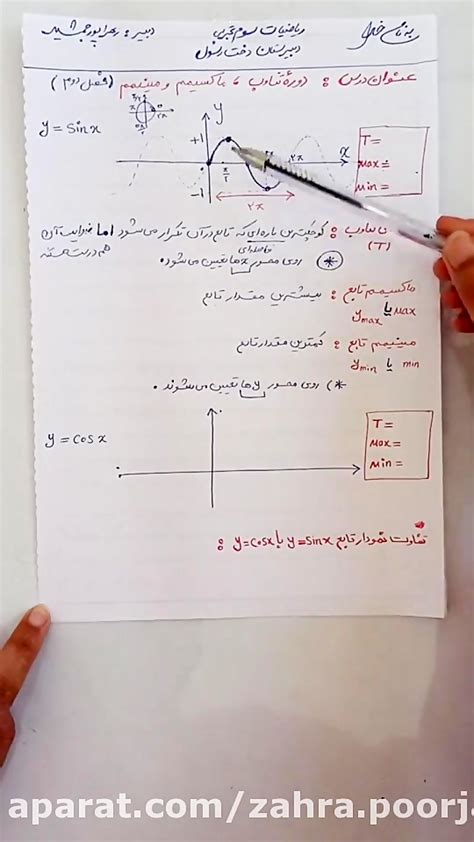 به نام خدا
ریاضیات سوم تجربی
دبیر: زهرا پورجمشید
دبیرستان دخت رسول
عنوان درس: دورهٔ تناوب، ماکسیمم و مینیمم (فصل دوم)
y = sin x
y
+1
-1
π/2
2π
x
2π
T =
max =
min =
تناوب: کوچکترین بازه‌ای که تابع در آن تکرار می‌شود اما ضرایب آن هم درست هستند
(T)
فاصله‌ای
* روی محور xها تعیین می‌شود.
ماکسیمم تابع: بیشترین مقدار تابع
max یا y max
مینیمم تابع: کمترین مقدار تابع
min یا y min
*) روی محور yها تعیین می‌شوند.
y = cos x
T =
max =
min =
تفاوت نمودار تابع y = sin x با y = cos x:
aparat.com/zahra.poorj